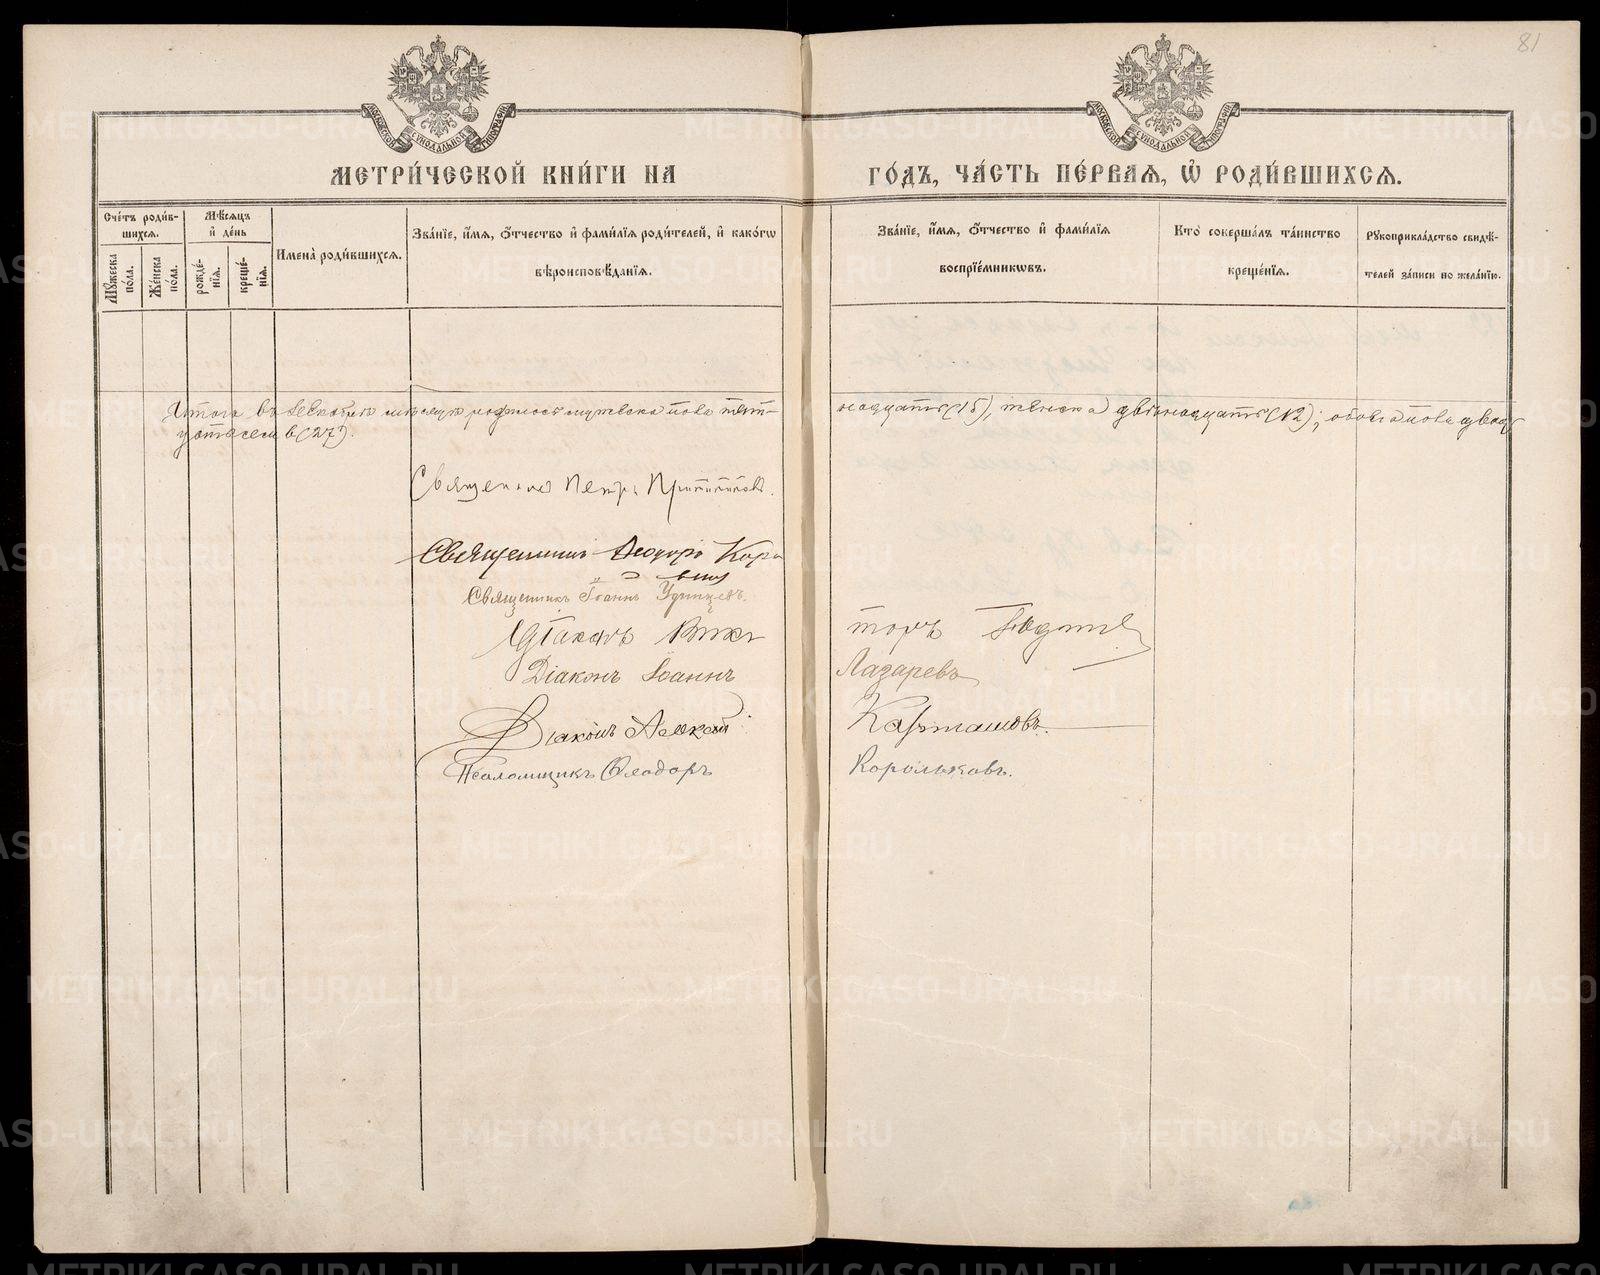 81
МОСКОВСКОЙ СѴНОДАЛЬНОЙ ТИПОГРАФІИ
МОСКОВСКОЙ СѴНОДАЛЬНОЙ ТИПОГРАФІИ
МЕТРИ́ЧЕСКОЙ КНИ́ГИ НА
ГО́ДЪ, ЧА́СТЬ ПЕ́РВАѦ, Ѡ҆ РОДИ́ВШИХСѦ.
Сче́тъ роди́в-
шихсѧ.
Мꙋ́жеска по́ла.
Же́нска по́ла.
Мѣ́сѧцъ
и҆ де́нь
рожде́-нїѧ.
креще́-нїѧ.
И҆мена̀ роди́вшихсѧ.
Зва́нїе, и҆́мѧ, ѻ҆́тчество и҆ фами́лїѧ роди́телей, и҆ како́гѡ
вѣроисповѣ́данїѧ.
Зва́нїе, и҆́мѧ, ѻ҆́тчество и҆ фами́лїѧ
воспрїе́мникѡвъ.
Кто̀ соверша́лъ та́инство
креще́нїѧ.
Рꙋкоприкла́дство свидѣ́-
телей за́писи по жела́нїю.
Итого въ месяце родилось мужеска пола пят-
надцать (15), женска двѣнадцать (12); обоего пола двад
цать семь (27).
Священникъ Петръ
Священникъ Ѳеодоръ Кор
Священникъ Іоаннъ Удинцевъ.
Діаконъ Викторъ
Діаконъ Іоаннъ Лазаревъ
Діаконъ Алексій Карташовъ.
Псаломщикъ Ѳеодоръ Корольковъ.
METRIKI.GASO-URAL.RU